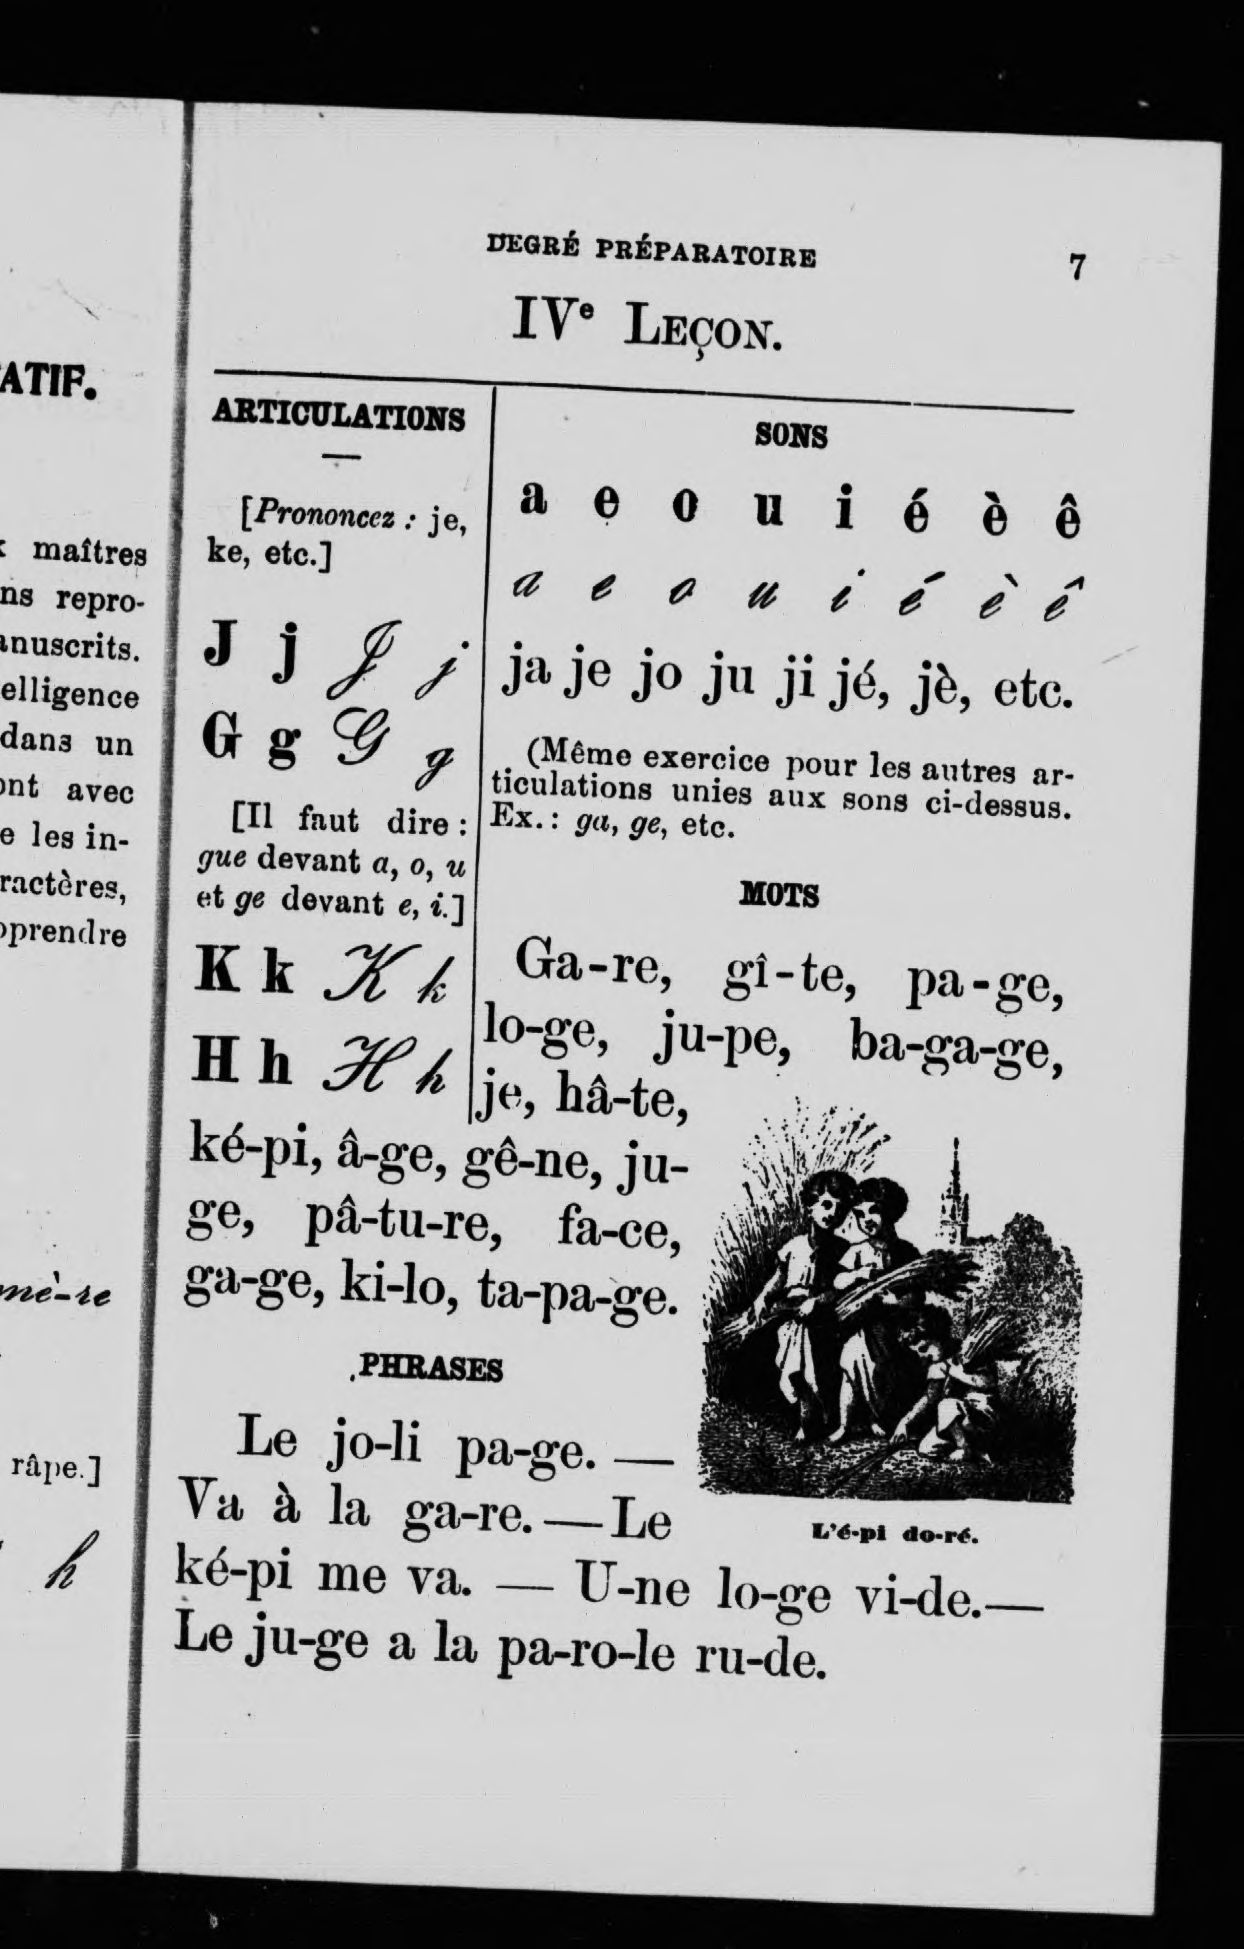 DEGRÉ PRÉPARATOIRE 7
IVe LEÇON.
ARTICULATIONS
[Prononcez : je,
ke, etc.]
J j J j
G g G g
[Il faut dire :
gue devant a, o, u
et ge devant e, i.]
K k K k
H h H h
SONS
a e o u i é è ê
a e o u i é è ê
ja je jo ju ji jé, jè, etc.
(Même exercice pour les autres ar-
ticulations unies aux sons ci-dessus.
Ex. : ga, ge, etc.
MOTS
Ga-re, gî-te, pa-ge,
lo-ge, ju-pe, ba-ga-ge,
je, hâ-te,
ké-pi, â-ge, gê-ne, ju-
ge, pâ-tu-re, fa-ce,
ga-ge, ki-lo, ta-pa-ge.
PHRASES
Le jo-li pa-ge. —
Va à la ga-re. — Le
ké-pi me va. — U-ne lo-ge vi-de. —
Le ju-ge a la pa-ro-le ru-de.
L'é-pi do-ré.
ATIF.
maîtres
ns repro-
anuscrits.
elligence
dans un
ont avec
e les in-
ractères,
pprendre
mè-re
râpe.]
h